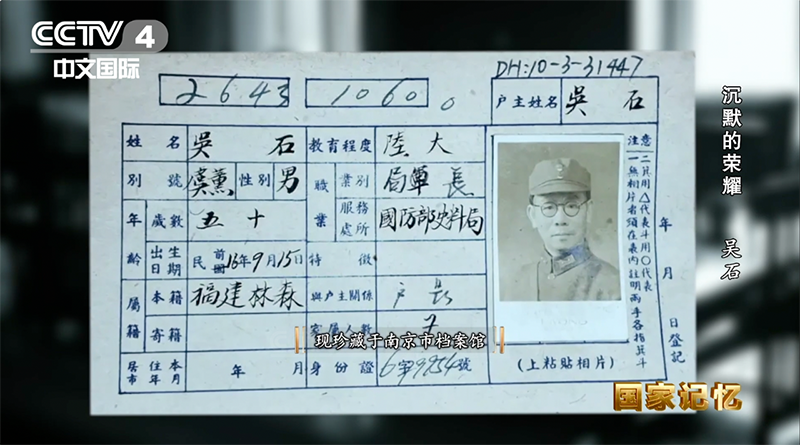 CCTV 4
中文国际
DH:10-3-31447
2643 10600
户主姓名 吳石
姓名 吳石 教育程度 陸大
別號 虞薰 性別 男 職業 業別 局單長
年齡 歲數 五十 服務處所 國防部史料局
出生日期 民前國16年9月15日 特徵
屬籍 本籍 福建林森 與戶主關係 戶長
寄籍 寄屬人數 7
居住本市年月 年 月 身份證 6第9954號
(上粘貼相片)
注意
一無相片者須在表內註明兩手各指箕斗
二箕用△代表斗用〇代表
年 月 日登記
沉默的荣耀 吴石
现珍藏于南京市档案馆
国家记忆